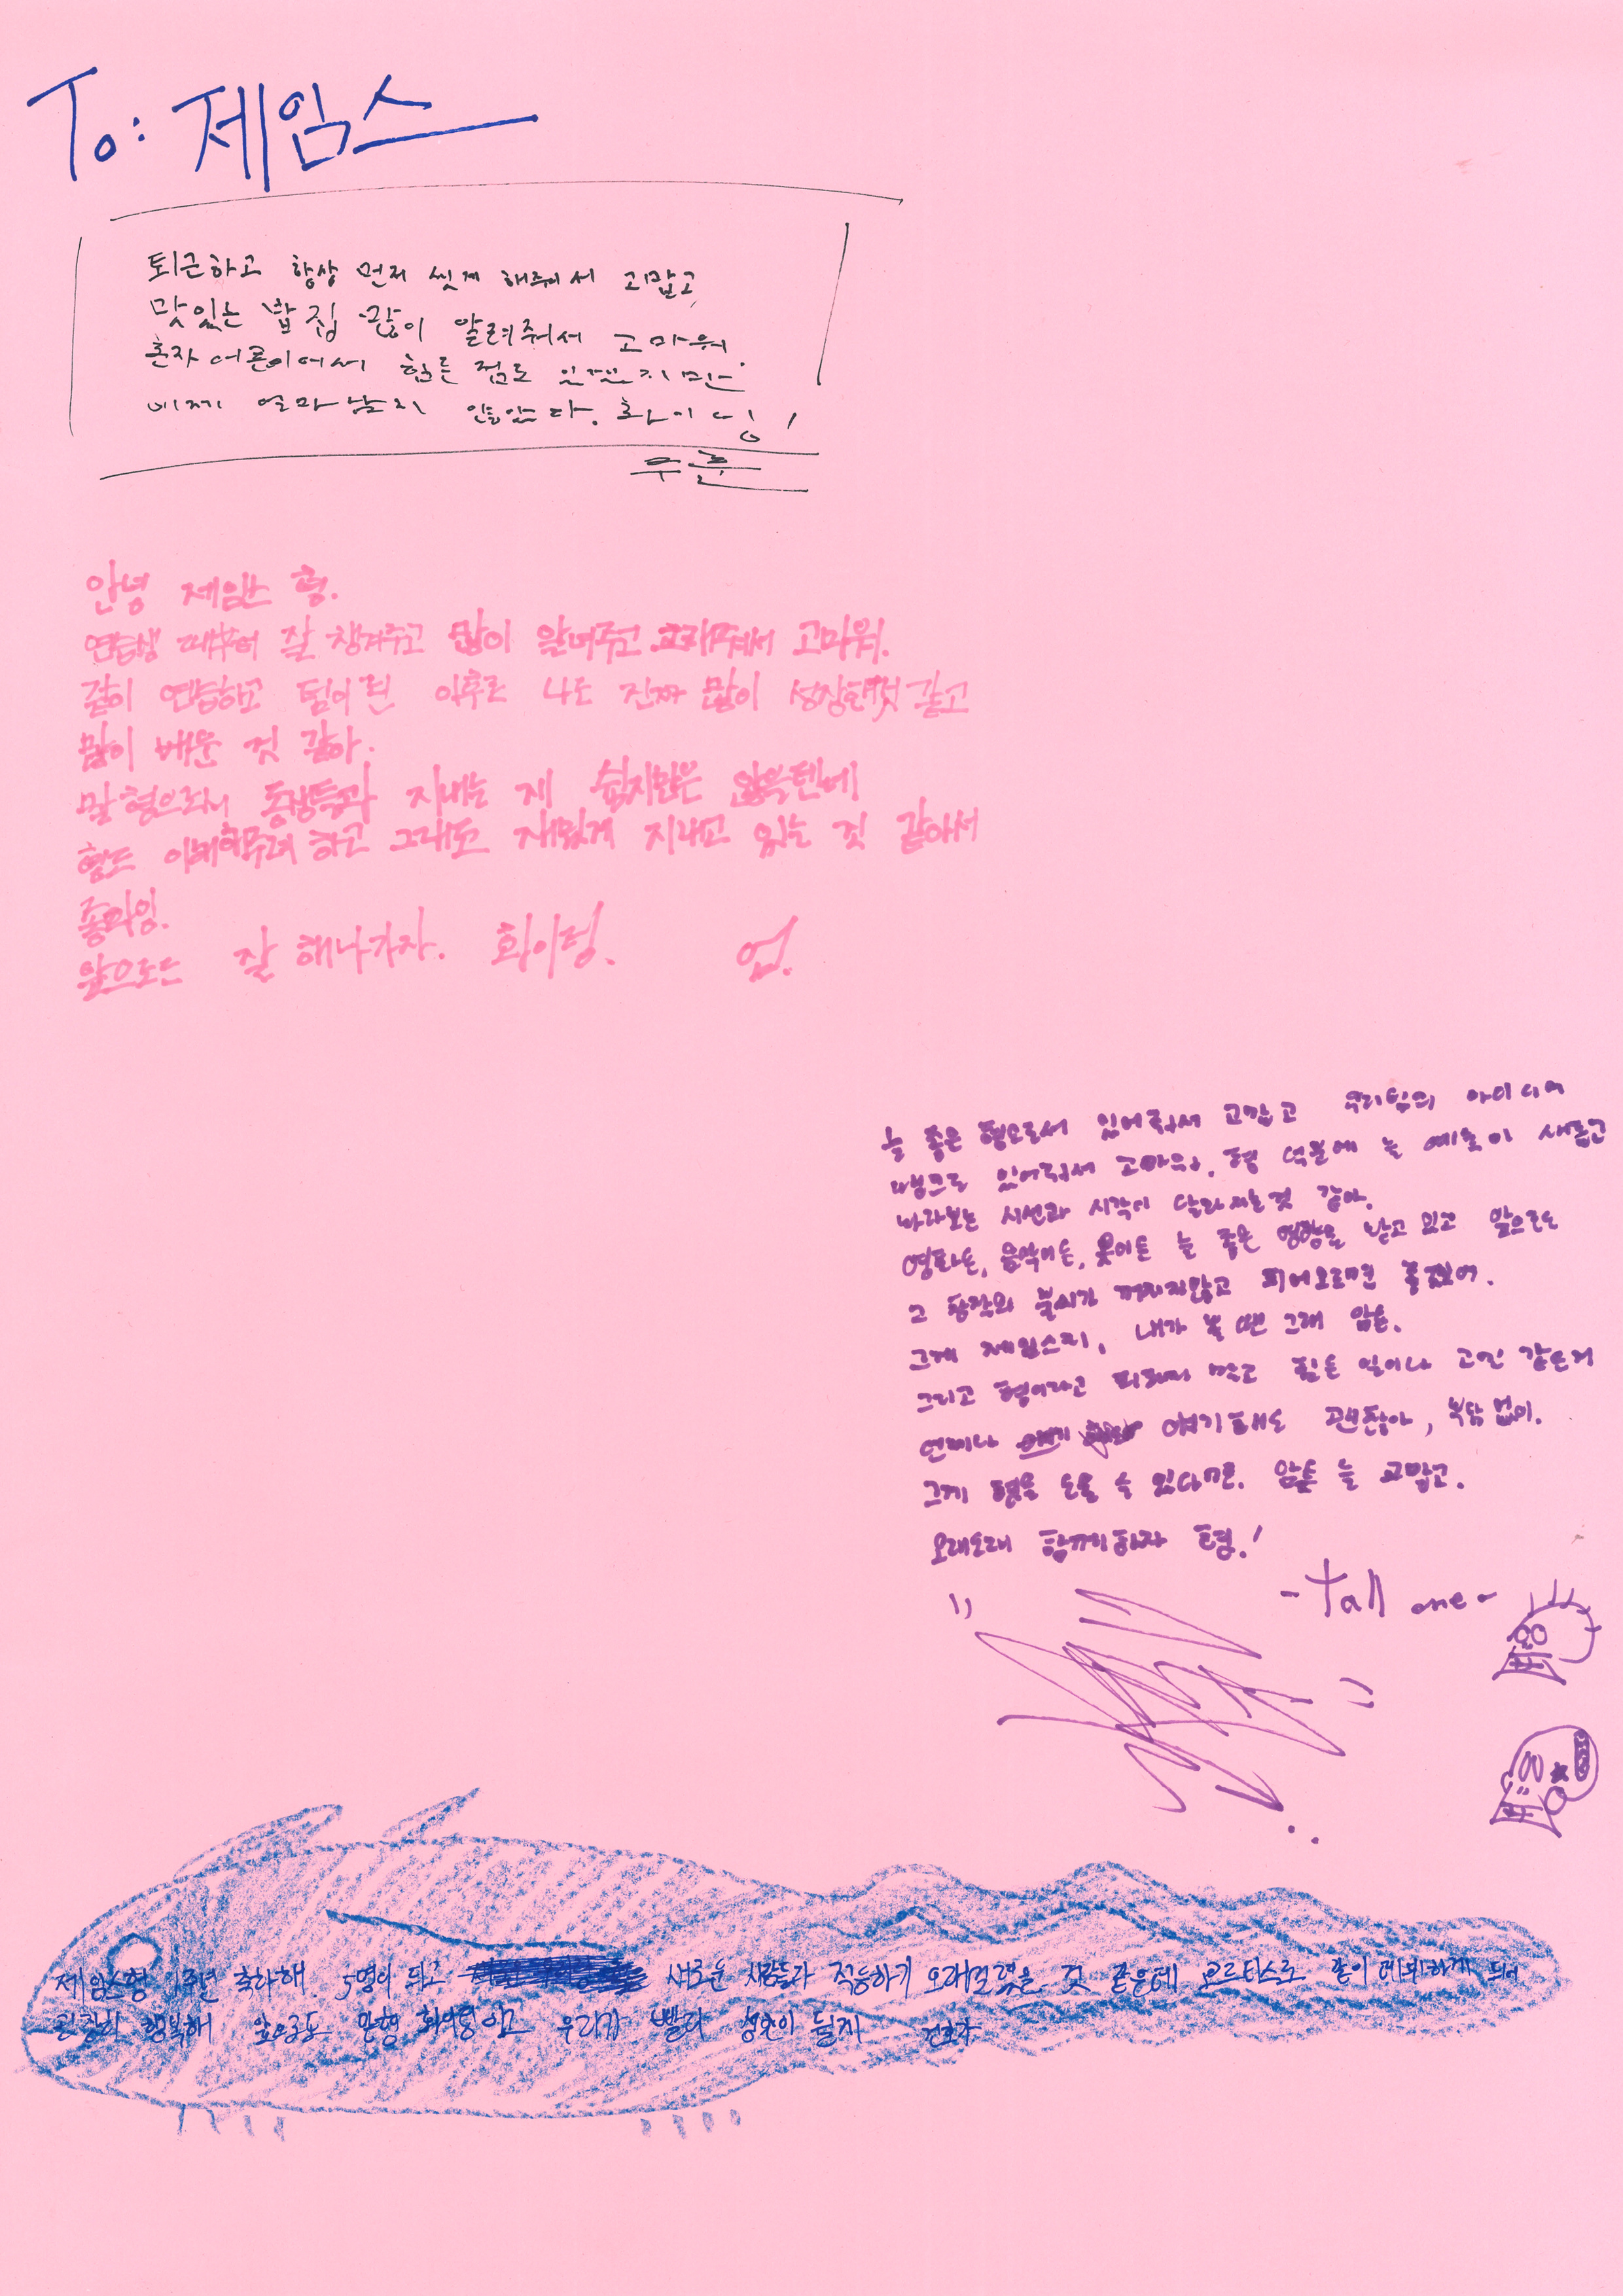 To: 제임스
퇴근하고 항상 먼저 씻게 해줘서 고맙고
맛있는 밥집 많이 알려줘서 고마워.
혼자 어른이어서 힘든 점도 있겠지만
이제 얼마남지 않았다. 화이팅!
주훈
안녕 제임스 형.
연습생 때부터 잘 챙겨주고 많이 알려주고 고마워.
같이 연습하고 팀이 된 이후로 나도 진짜 많이 성장한것 같고
많이 배운 것 같아.
맏형으로서 동생들과 지내는 게 쉽지만은 않을텐데
형도 이해해주려 하고 그래도 재밌게 지내고 있는 것 같아서
좋아잉.
앞으로도 잘 해나가자. 화이팅.
늘 좋은 형으로서 있어줘서 고맙고 우리팀의 아이디어
뱅크로 있어줘서 고마워. 형 덕분에 늘 예술이 새롭고
바라보는 시선과 시각이 달라지는것 같아.
영화든, 음악이든, 옷이든 늘 좋은 영향을 받고 있고 앞으로도
그 창작의 불씨가 꺼지지않고 피어오르면 좋겠어.
그게 제임스지, 내가 볼 땐 그래 암튼.
그리고 형이라고 말고 힘든 일이나 고민 같은거
언제나 얘기해도 괜찮아, 부담 없이.
그게 형을 도울 수 있다면. 암튼 늘 고맙고.
오래오래 함께하자 형!
-tall one-
제임스형 1주년 축하해 5명이 되고 새로운 사람들과 적응하기 오래걸렸을 것 같은데 코르티스로 같이 데뷔하게 되어
굉장히 행복해 앞으로도 맏형 화이팅이고 우리가 빨리 성인이 될게 건호가